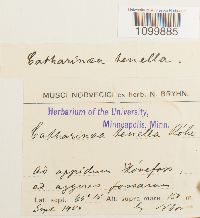 1099885
Catharinaea tenella.
MUSCI NORVEGICI ex herb. N. BRYHN.
Herbarium of the University,
Minneapolis, Minn.
Catharinaea tenella Röhl
Ad oppidum Hönefos
ex aggere fossarum
Lat. sept. 60° Alt. supra mare 150 m
Sept.